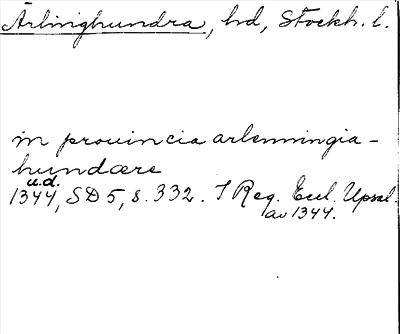 Ärlinghundra, hd, Stockh. l.
in prouincia arlenningia-
hundære
u.d.
1344, SD 5, s. 332. I Reg. Eccl. Upsal.
av 1344.